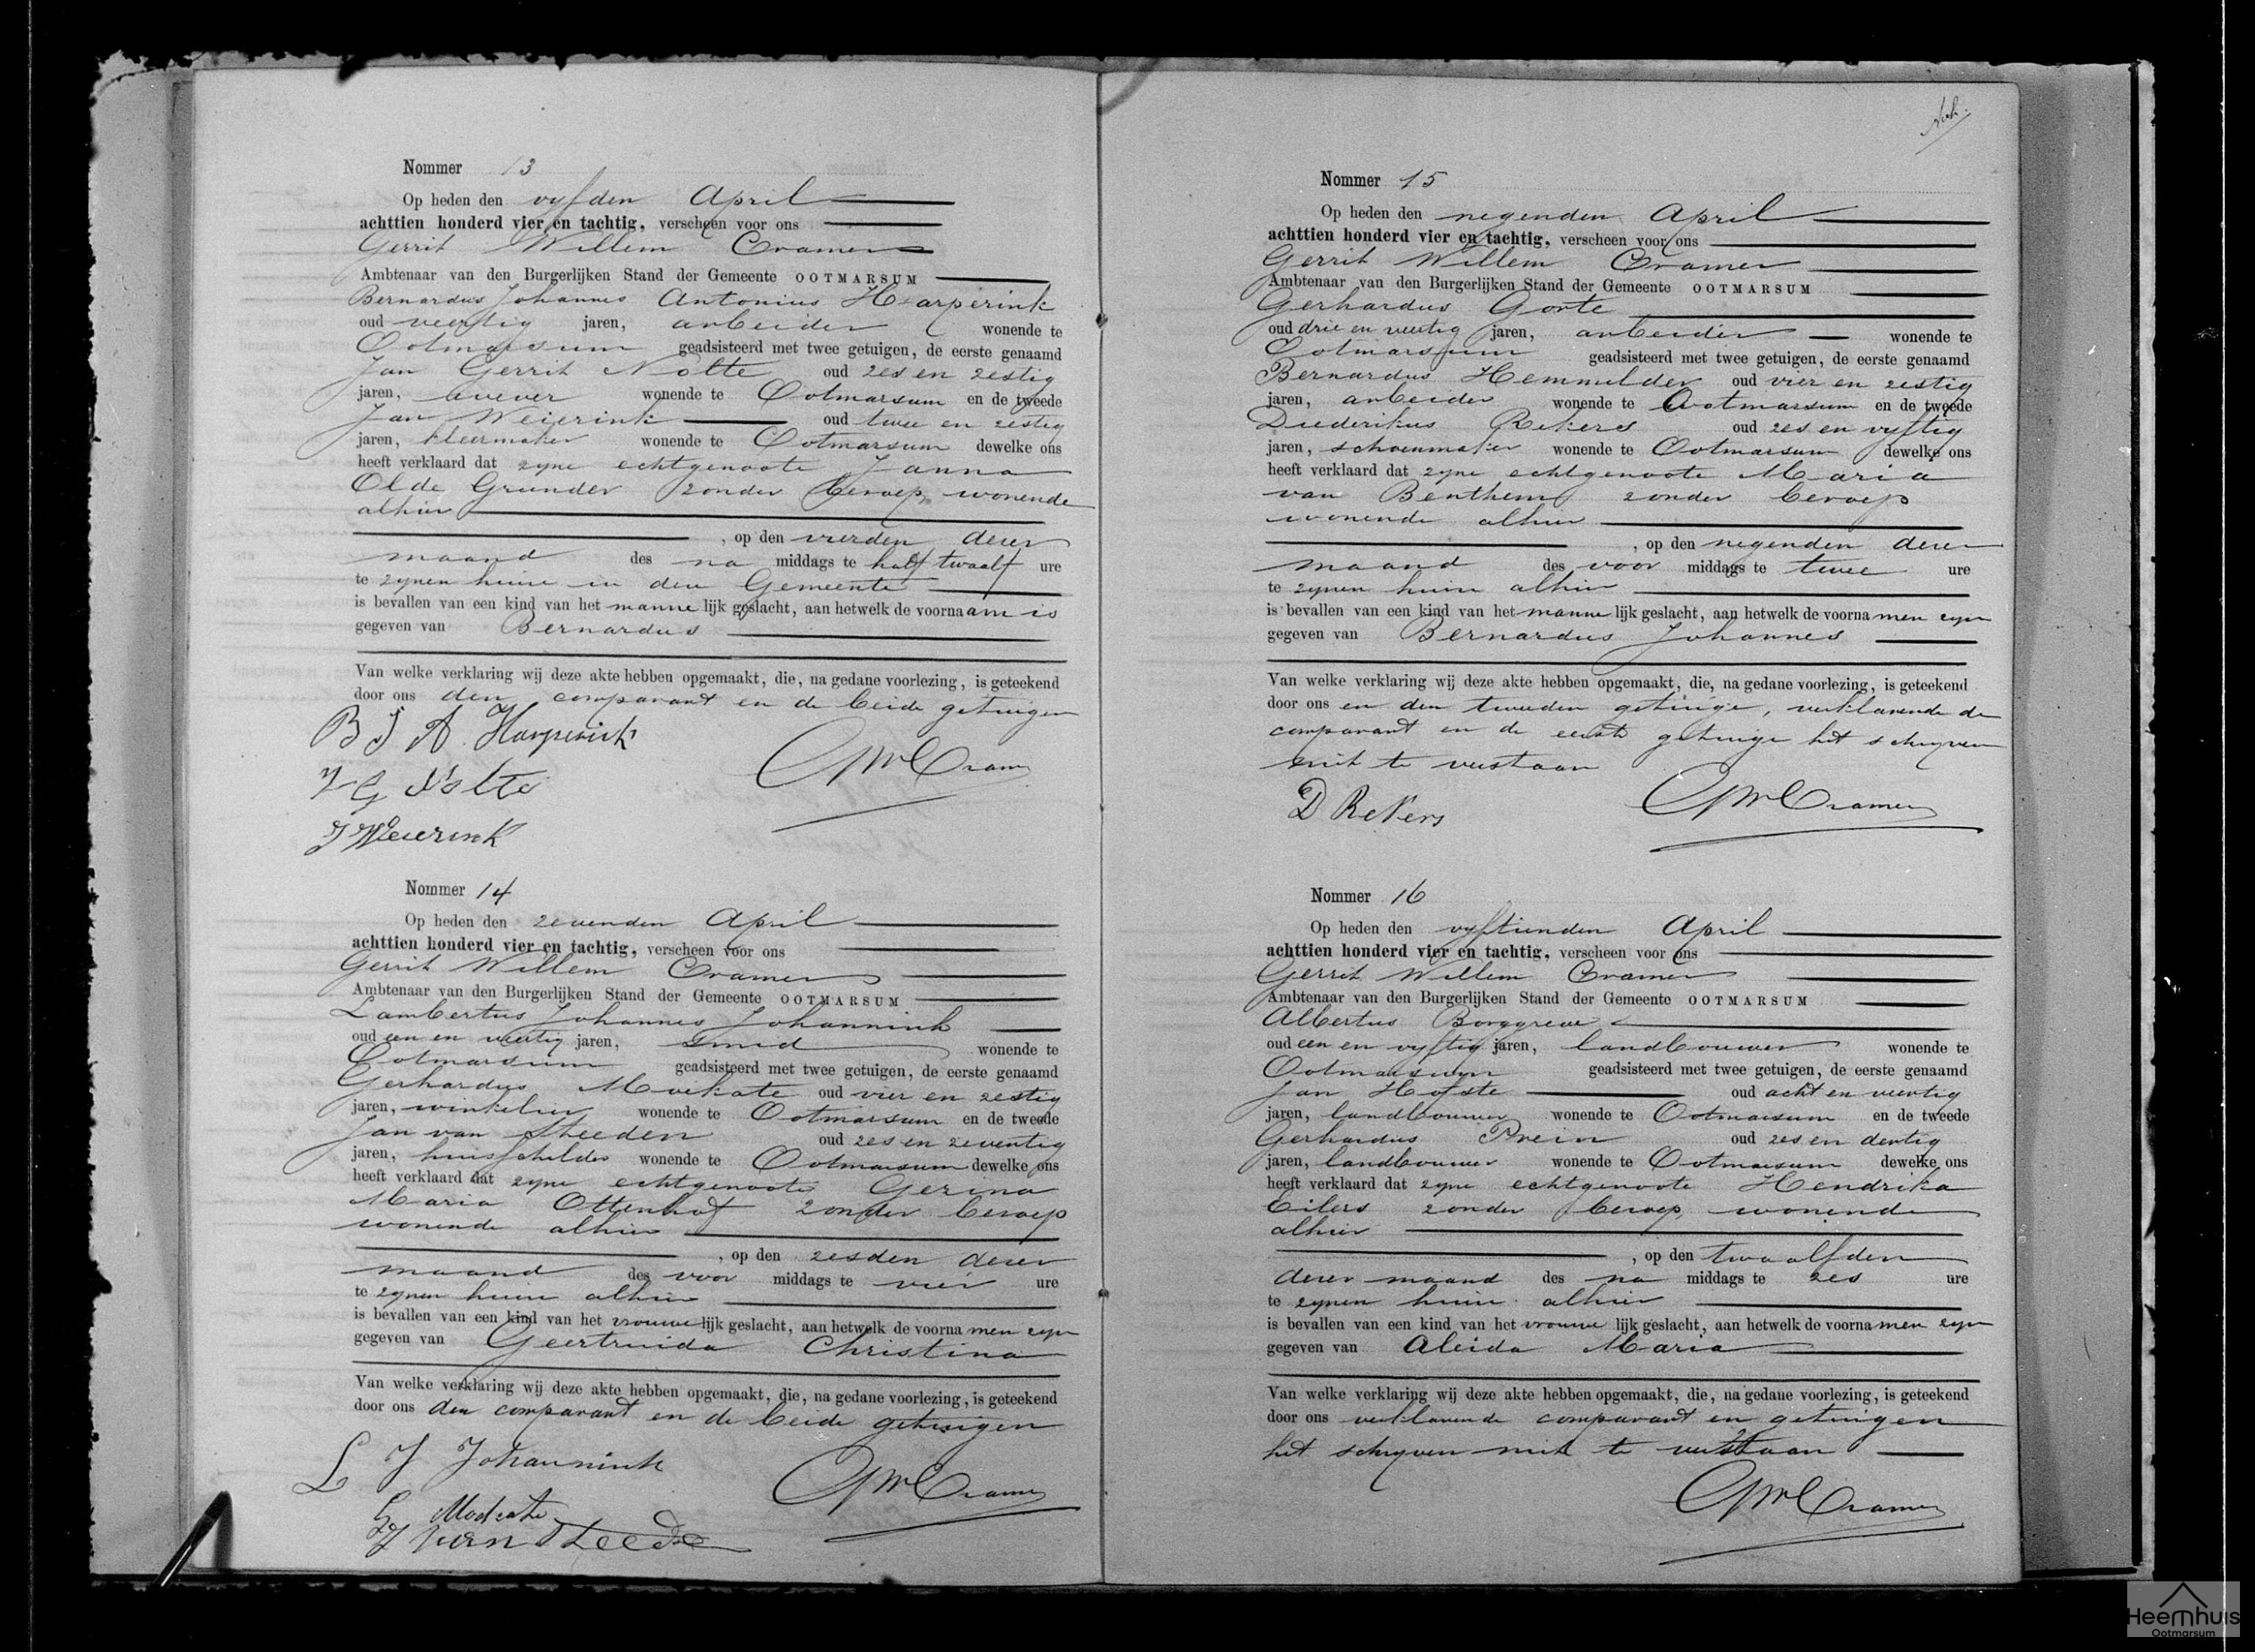 Nommer 13
Op heden den vyfden April
achttien honderd vier en tachtig, verscheen voor ons
Gerrit Willem Cramer
Ambtenaar van den Burgerlijken Stand der Gemeente OOTMARSUM
Bernardus Johannes Antonius Harperink
oud veertig jaren, arbeider wonende te
Ootmarsum geadsisteerd met twee getuigen, de eerste genaamd
Jan Gerrit Nolte oud zes en zestig
jaren, wever wonende te Ootmarsum en de tweede
Jan Weierink oud twee en zestig
jaren, kleermaker wonende te Ootmarsum dewelke ons
heeft verklaard dat zyne echtgenoote Janna
Olde Grunder zonder beroep, wonende
alhier
, op den vierden dezer
maand des na middags te half twaalf ure
te zynen huize in deze Gemeente
is bevallen van een kind van het mannelijk geslacht, aan hetwelk de voornaam is
gegeven van Bernardus
Van welke verklaring wij deze akte hebben opgemaakt, die, na gedane voorlezing, is geteekend
door ons den comparant en de beide getuigen
B J A Harperink
J G Nolte GW Cramer
J Weierink
Nommer 14
Op heden den zevenden April
achttien honderd vier en tachtig, verscheen voor ons
Gerrit Willem Cramer
Ambtenaar van den Burgerlijken Stand der Gemeente OOTMARSUM
Lambertus Johannes Johannink
oud een en veertig jaren, smid wonende te
Ootmarsum geadsisteerd met twee getuigen, de eerste genaamd
Gerhardus Moekate oud vier en zestig
jaren, winkelier wonende te Ootmarsum en de tweede
Jan van Steeden oud zes en zeventig
jaren, huisschilder wonende te Ootmarsum dewelke ons
heeft verklaard dat zyne echtgenoote Gezina
Maria Ottenhof zonder beroep
wonende alhier
, op den zesden dezer
maand des voor middags te vier ure
te zynen huize alhier
is bevallen van een kind van het vrouwelijk geslacht, aan hetwelk de voornamen zyn
gegeven van Geertruida Christina
Van welke verklaring wij deze akte hebben opgemaakt, die, na gedane voorlezing, is geteekend
door ons den comparant en de beide getuigen
L J Johannink
GW Cramer
G
J van Steeden
Nommer 15
Op heden den negenden April
achttien honderd vier en tachtig, verscheen voor ons
Gerrit Willem Cramer
Ambtenaar van den Burgerlijken Stand der Gemeente OOTMARSUM
Gerhardus Gorte
oud drie en veertig jaren, arbeider wonende te
Ootmarsum geadsisteerd met twee getuigen, de eerste genaamd
Bernardus Hemmelder oud vier en zestig
jaren, arbeider wonende te Ootmarsum en de tweede
Diederikus Rekers oud zes en vyftig
jaren, schoenmaker wonende te Ootmarsum dewelke ons
heeft verklaard dat zyne echtgenoote Maria
van Benthem zonder beroep
wonende alhier
, op den negenden dezer
maand des voor middags te twee ure
te zynen huize alhier
is bevallen van een kind van het mannelijk geslacht, aan hetwelk de voornamen zyn
gegeven van Bernardus Johannes
Van welke verklaring wij deze akte hebben opgemaakt, die, na gedane voorlezing, is geteekend
door ons en den tweeden getuige, verklarende de
comparant en de eerste getuige het schryven
niet te verstaan
D Rekers GW Cramer
Nommer 16
Op heden den vyftienden April
achttien honderd vier en tachtig, verscheen voor ons
Gerrit Willem Cramer
Ambtenaar van den Burgerlijken Stand der Gemeente OOTMARSUM
Albertus Borggreve
oud een en vyftig jaren, landbouwer wonende te
Ootmarsum geadsisteerd met twee getuigen, de eerste genaamd
Jan Hofste oud acht en veertig
jaren, landbouwer wonende te Ootmarsum en de tweede
Gerhardus Prein oud zes en dertig
jaren, landbouwer wonende te Ootmarsum dewelke ons
heeft verklaard dat zyne echtgenoote Hendrika
Eilers zonder beroep, wonende
alhier
, op den twaalfden
dezer maand des na middags te zes ure
te zynen huize alhier
is bevallen van een kind van het vrouwelijk geslacht, aan hetwelk de voornamen zyn
gegeven van Aleida Maria
Van welke verklaring wij deze akte hebben opgemaakt, die, na gedane voorlezing, is geteekend
door ons verklarende comparant en getuigen
het schryven niet te verstaan
GW Cramer
Heemhuis
Ootmarsum